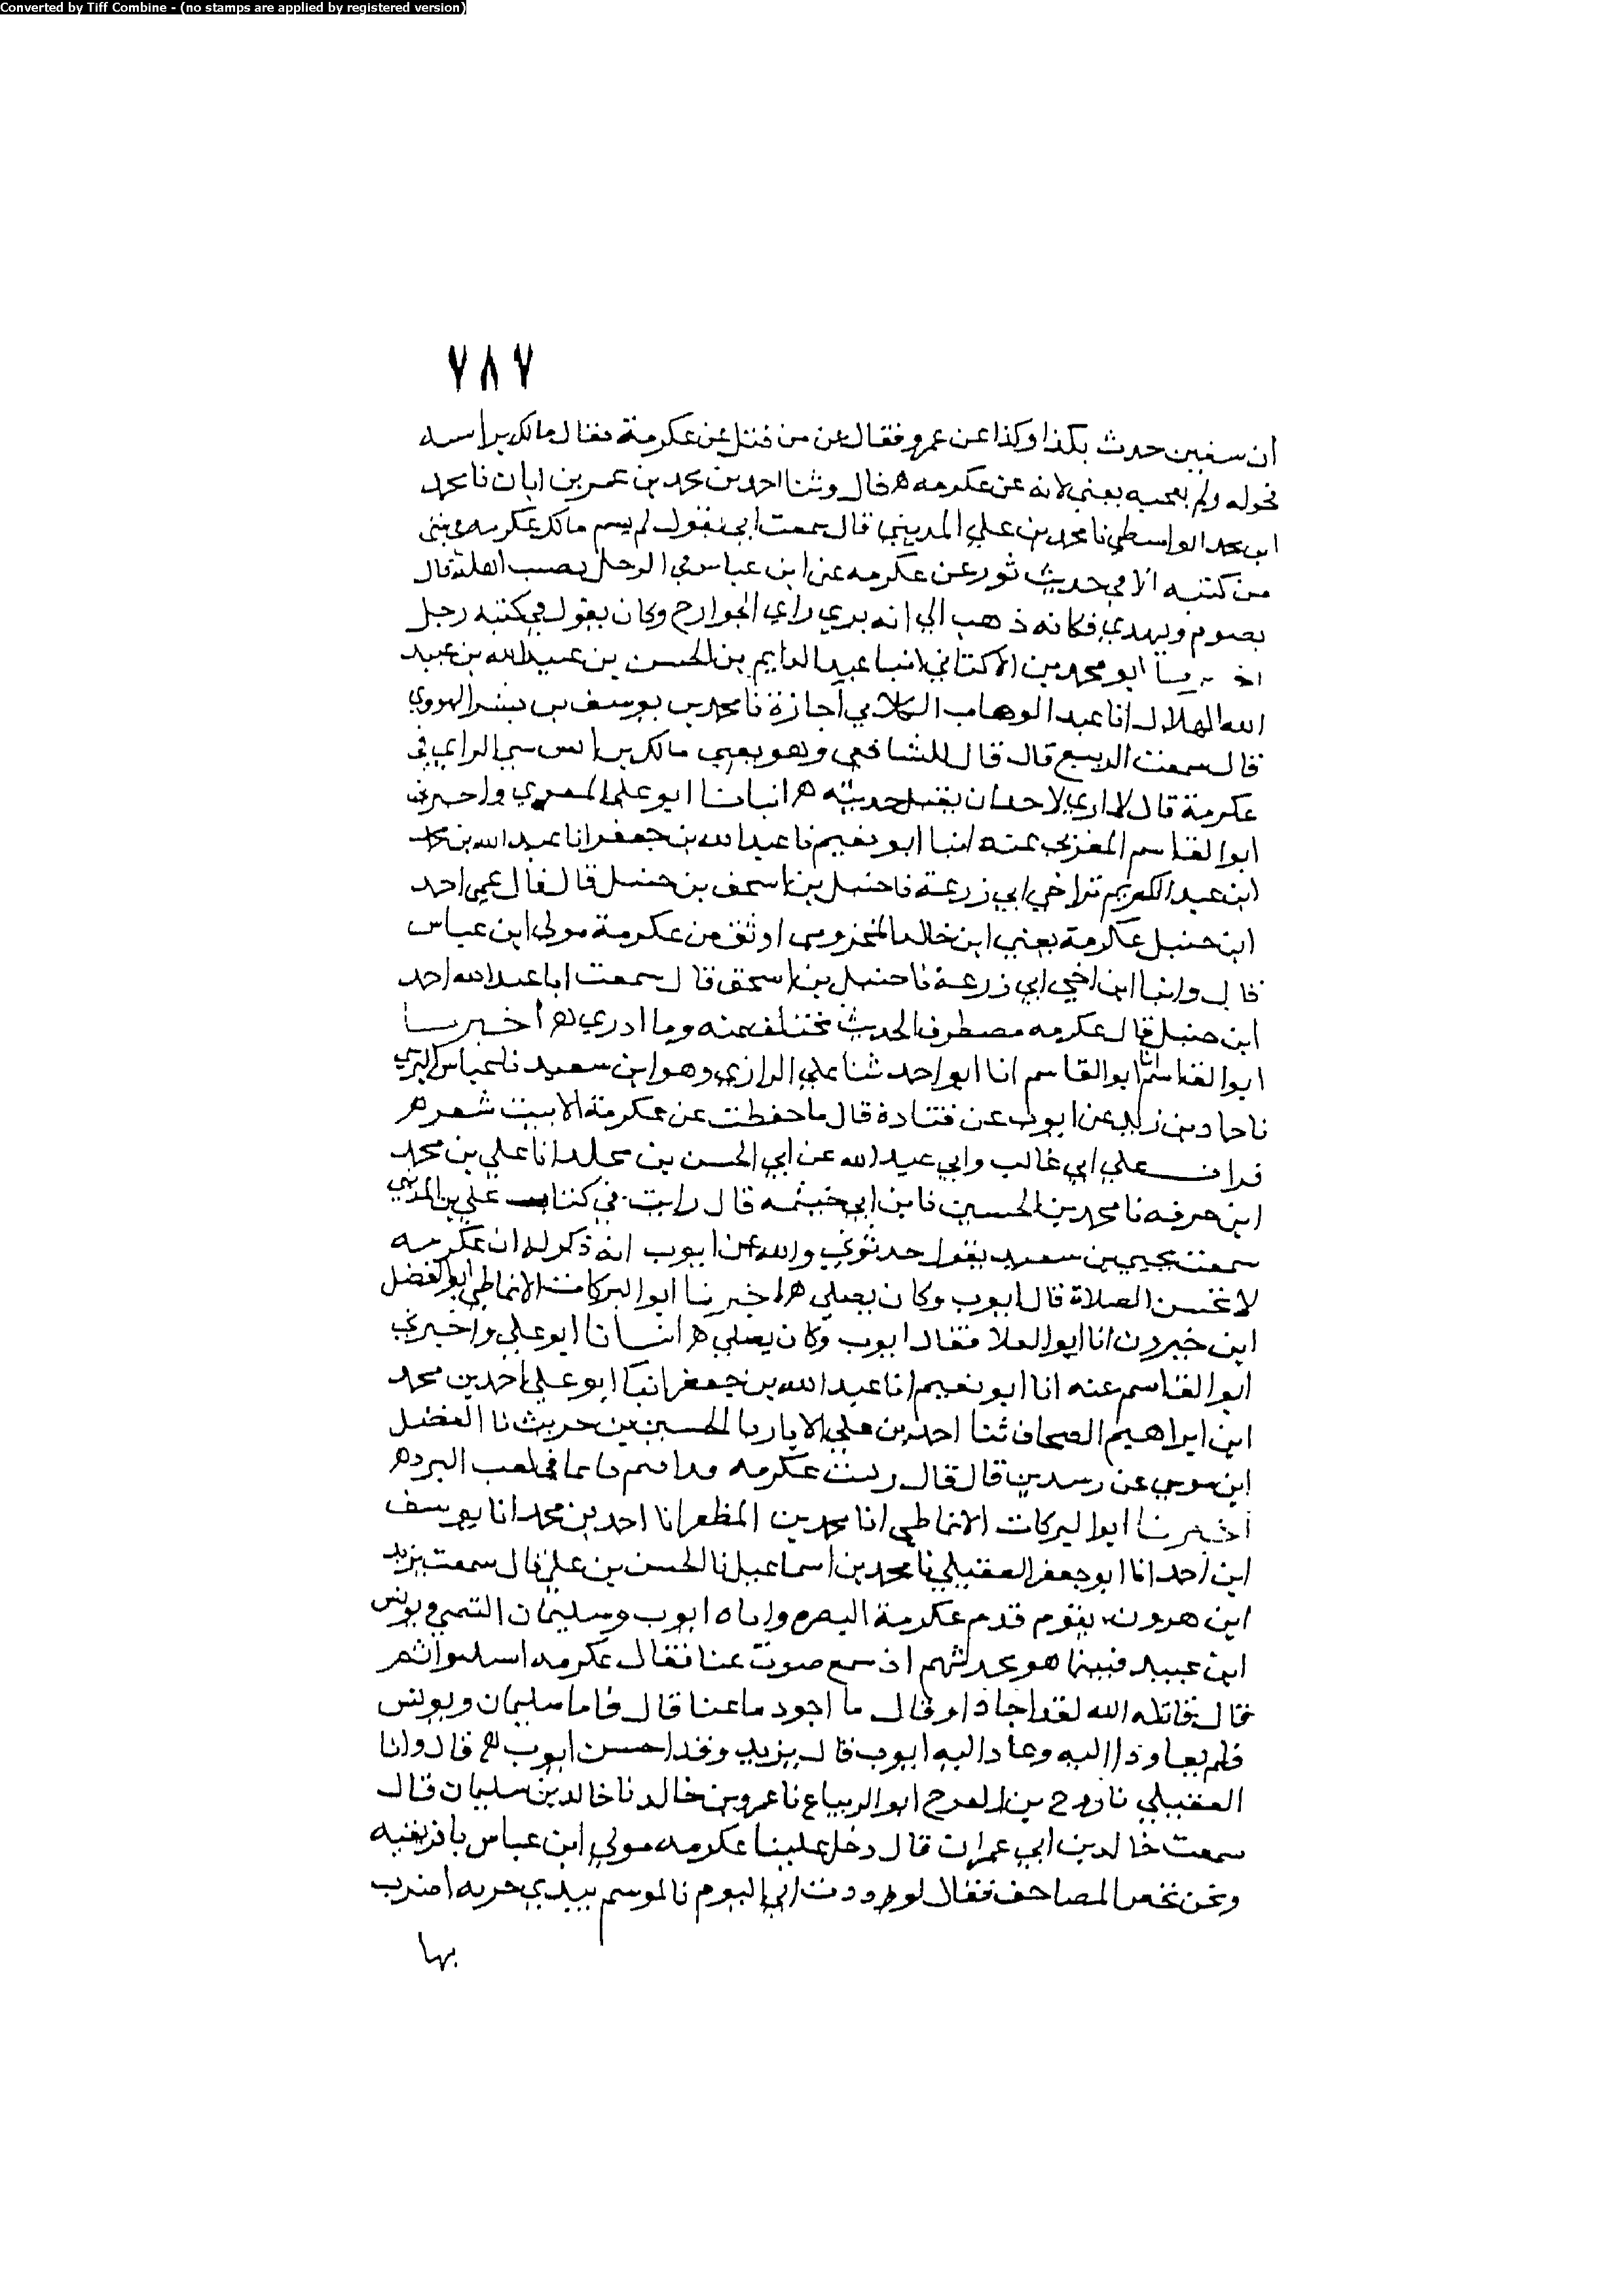 Converted by Tiff Combine - (no stamps are applied by registered version)
٧٨٧
ان سفين حدث بكذا وكذا عن عمرو فقال عن من قتل عن عكرمة فقال مالك براسه
نحوله ولم يعجبه يعني لانه عن عكرمه ه قال وثنا احمد بن محمد بن عمر بن ابان نا محمد
ابن محمد الواسطي نا محمد بن علي المديني قال سمعت ابي يقول لم يسم مالك عكرمه في شي
من كتبه الا في حديث ثور عن عكرمه عن ابن عباس في الرجل يصيب اهله قال
يصوم ويهدي فكانه ذهب الي انه يري راي الخوارج وكان يقول في كتبه رجل
اخبرنا ابو محمد بن الاكفاني انبا عبد الدايم بن الحسن بن عبيد الله بن عبيد
الله الهلال انا عبد الوهاب الكلابي اجازة نا محمد بن يوسف بن بشر الهروي
قال سمعت الربيع قال قال الشافعي وهو يعني مالك بن انس سي الراي في
عكرمة قال لا اري لاحد ان يقبل حديثه ه انبانا ابو علي المصري واخبرنا
ابو القاسم عنه انبا ابو نعيم نا عبد الله بن جعفر انا عبد الله بن محمد
ابن عبد الكريم بن اخي ابي زرعة نا حنبل بن اسحق بن حنبل قال قال عمي احمد
ابن حنبل عكرمة يعني ابن خالد المخزومي اوثق من عكرمة مولي ابن عباس
قال وانبا ابن اخي ابي زرعة نا حنبل بن اسحق قال سمعت ابا عبد الله احمد
ابن حنبل قال عكرمه مضطرب الحديث مختلف عنه وما ادري ه اخبرنا
ابو القاسم انا ابو القاسم انا ابو احمد ثنا علي الرازي وهو ابن سعيد نا عباس النرسي
نا حماد بن زيد عن ايوب عن قتادة قال ما حفظت عن عكرمة الا بيت شعر ه
قرات علي ابي غالب وابي عبد الله عن ابي الحسن بن مخلد انا علي بن محمد
ابن خزفه نا محمد بن الحسين نا ابن ابي خيثمه قال رايت في كتاب علي بن المديني
سمعت يحيي بن سعيد يقول حدثوني والله عن ايوب انه ذكر له ان عكرمه
لا يحسن الصلاة قال ايوب وكان يصلي ه اخبرنا ابو البركات الانماطي ابو الفضل
ابن خيرون انا ابو العلا فقال ايوب وكان يصلي ه انبانا ابو علي واخبرني
ابو القاسم عنه انا ابو نعيم انا عبد الله بن جعفر انبا ابو علي احمد بن محمد
ابن ابراهيم الصحاف ثنا احمد بن علي الابار نا الحسين بن حريث نا الفضل
ابن موسي عن رشدين قال قال رايت عكرمه قد اقيم قائما في لعب النرد ه
اخبرنا ابو البركات الانماطي انا محمد بن المظفر انا احمد بن محمد انا يوسف
ابن احمد انا ابو جعفر العقيلي نا محمد بن اسماعيل نا الحسن بن علي قال سمعت يزيد
ابن هرون يقول قدم عكرمة البصره واتاه ايوب وسليمان التيمي ويونس
ابن عبيد فبينا هو يحدثهم اذ سمع صوت غنا فقال عكرمه اسكتوا ثم
قال قاتله الله لقد اجاد او قال ما اجود ما غنا قال فاما سليمان ويونس
فلم يعاودا اليه وعاد اليه ايوب قال يزيد وقد احسن ايوب ه قال وانا
العقيلي نا روح بن الفرج ابو الزنباع نا عمرو بن خالد نا خالد بن سليمان قال
سمعت خالد بن ابي عمران قال دخل علينا عكرمه مولي ابن عباس بافريقيه
ونحن نخص المصاحف فقال لوددت اني اليوم بالموسم بيدي حربه اضرب
بها